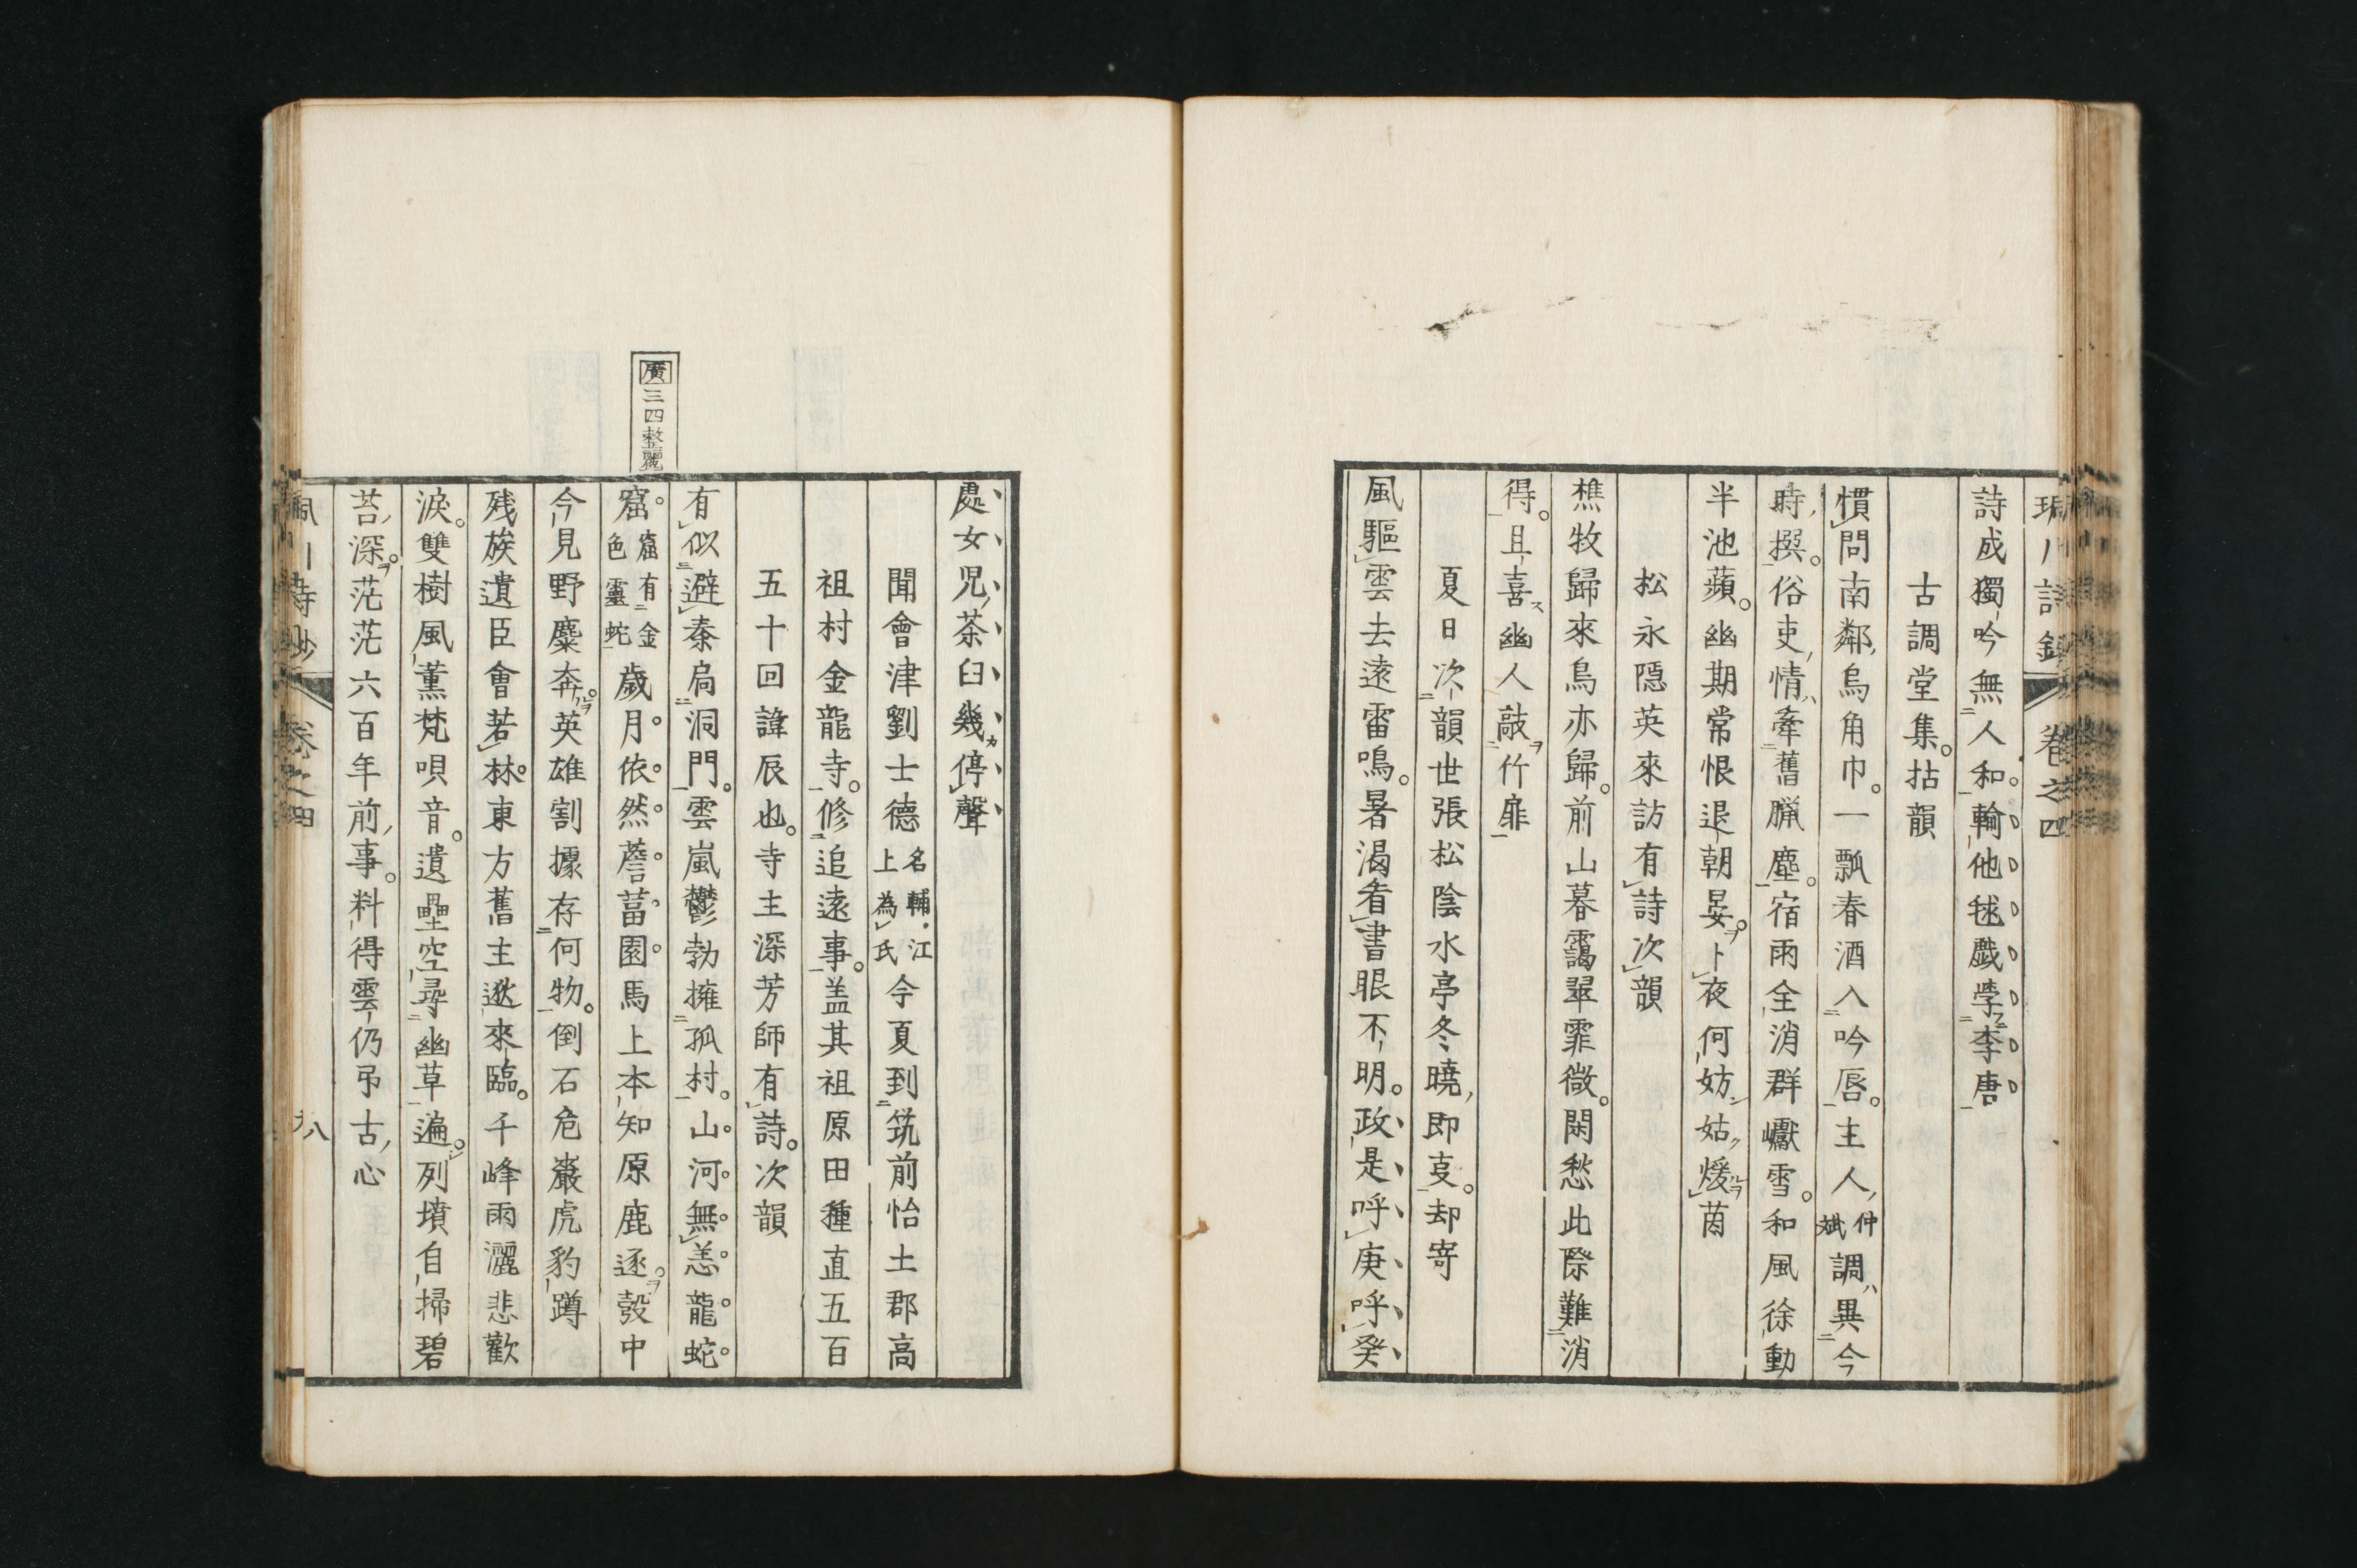 詩成獨吟無人和。輸他毬戲學李唐
古調堂集。拈韻
慣問南鄰烏角巾。一瓢春酒入吟唇。主人仲斌調異今
時撰。俗吏情牽舊臘塵。宿雨全消群巘雪。和風徐動
半池蘋。幽期常恨退朝晏。卜夜何妨姑煖茵
松永隱英來訪有詩次韻
樵牧歸來鳥亦歸。前山暮靄翠霏微。閑愁此際難消
得。且喜幽人敲竹扉
夏日次韻世張松陰水亭冬曉即㕝。却寄
風驅雲去遠雷鳴。暑渴看書眼不明。政是呼庚呼癸
卷之四
處女児茶臼幾停聲
聞會津劉士德名輔江上為氏今夏到筑前怡土郡高
祖村金龍寺。修追遠事。盖其祖原田種直五百
五十回諱辰也。寺主深芳師有詩。次韻
有似避秦扃洞門。雲嵐鬱勃擁孤村。山河無恙龍蛇
窟。窟有金色靈蛇歲月依然薝蔔園馬上本知原鹿逐。彀中
今見野麋奔。英雄割據存何物。倒石危巖虎豹蹲
残族遺臣會若林。東方舊主逖來臨。千峰雨灑悲歡
淚。雙樹風薫梵唄音。遺壘空尋幽草遍。列墳自掃碧
苔深。茫茫六百年前事。料得雲仍弔古心
廣三四整麗
卷之四
八